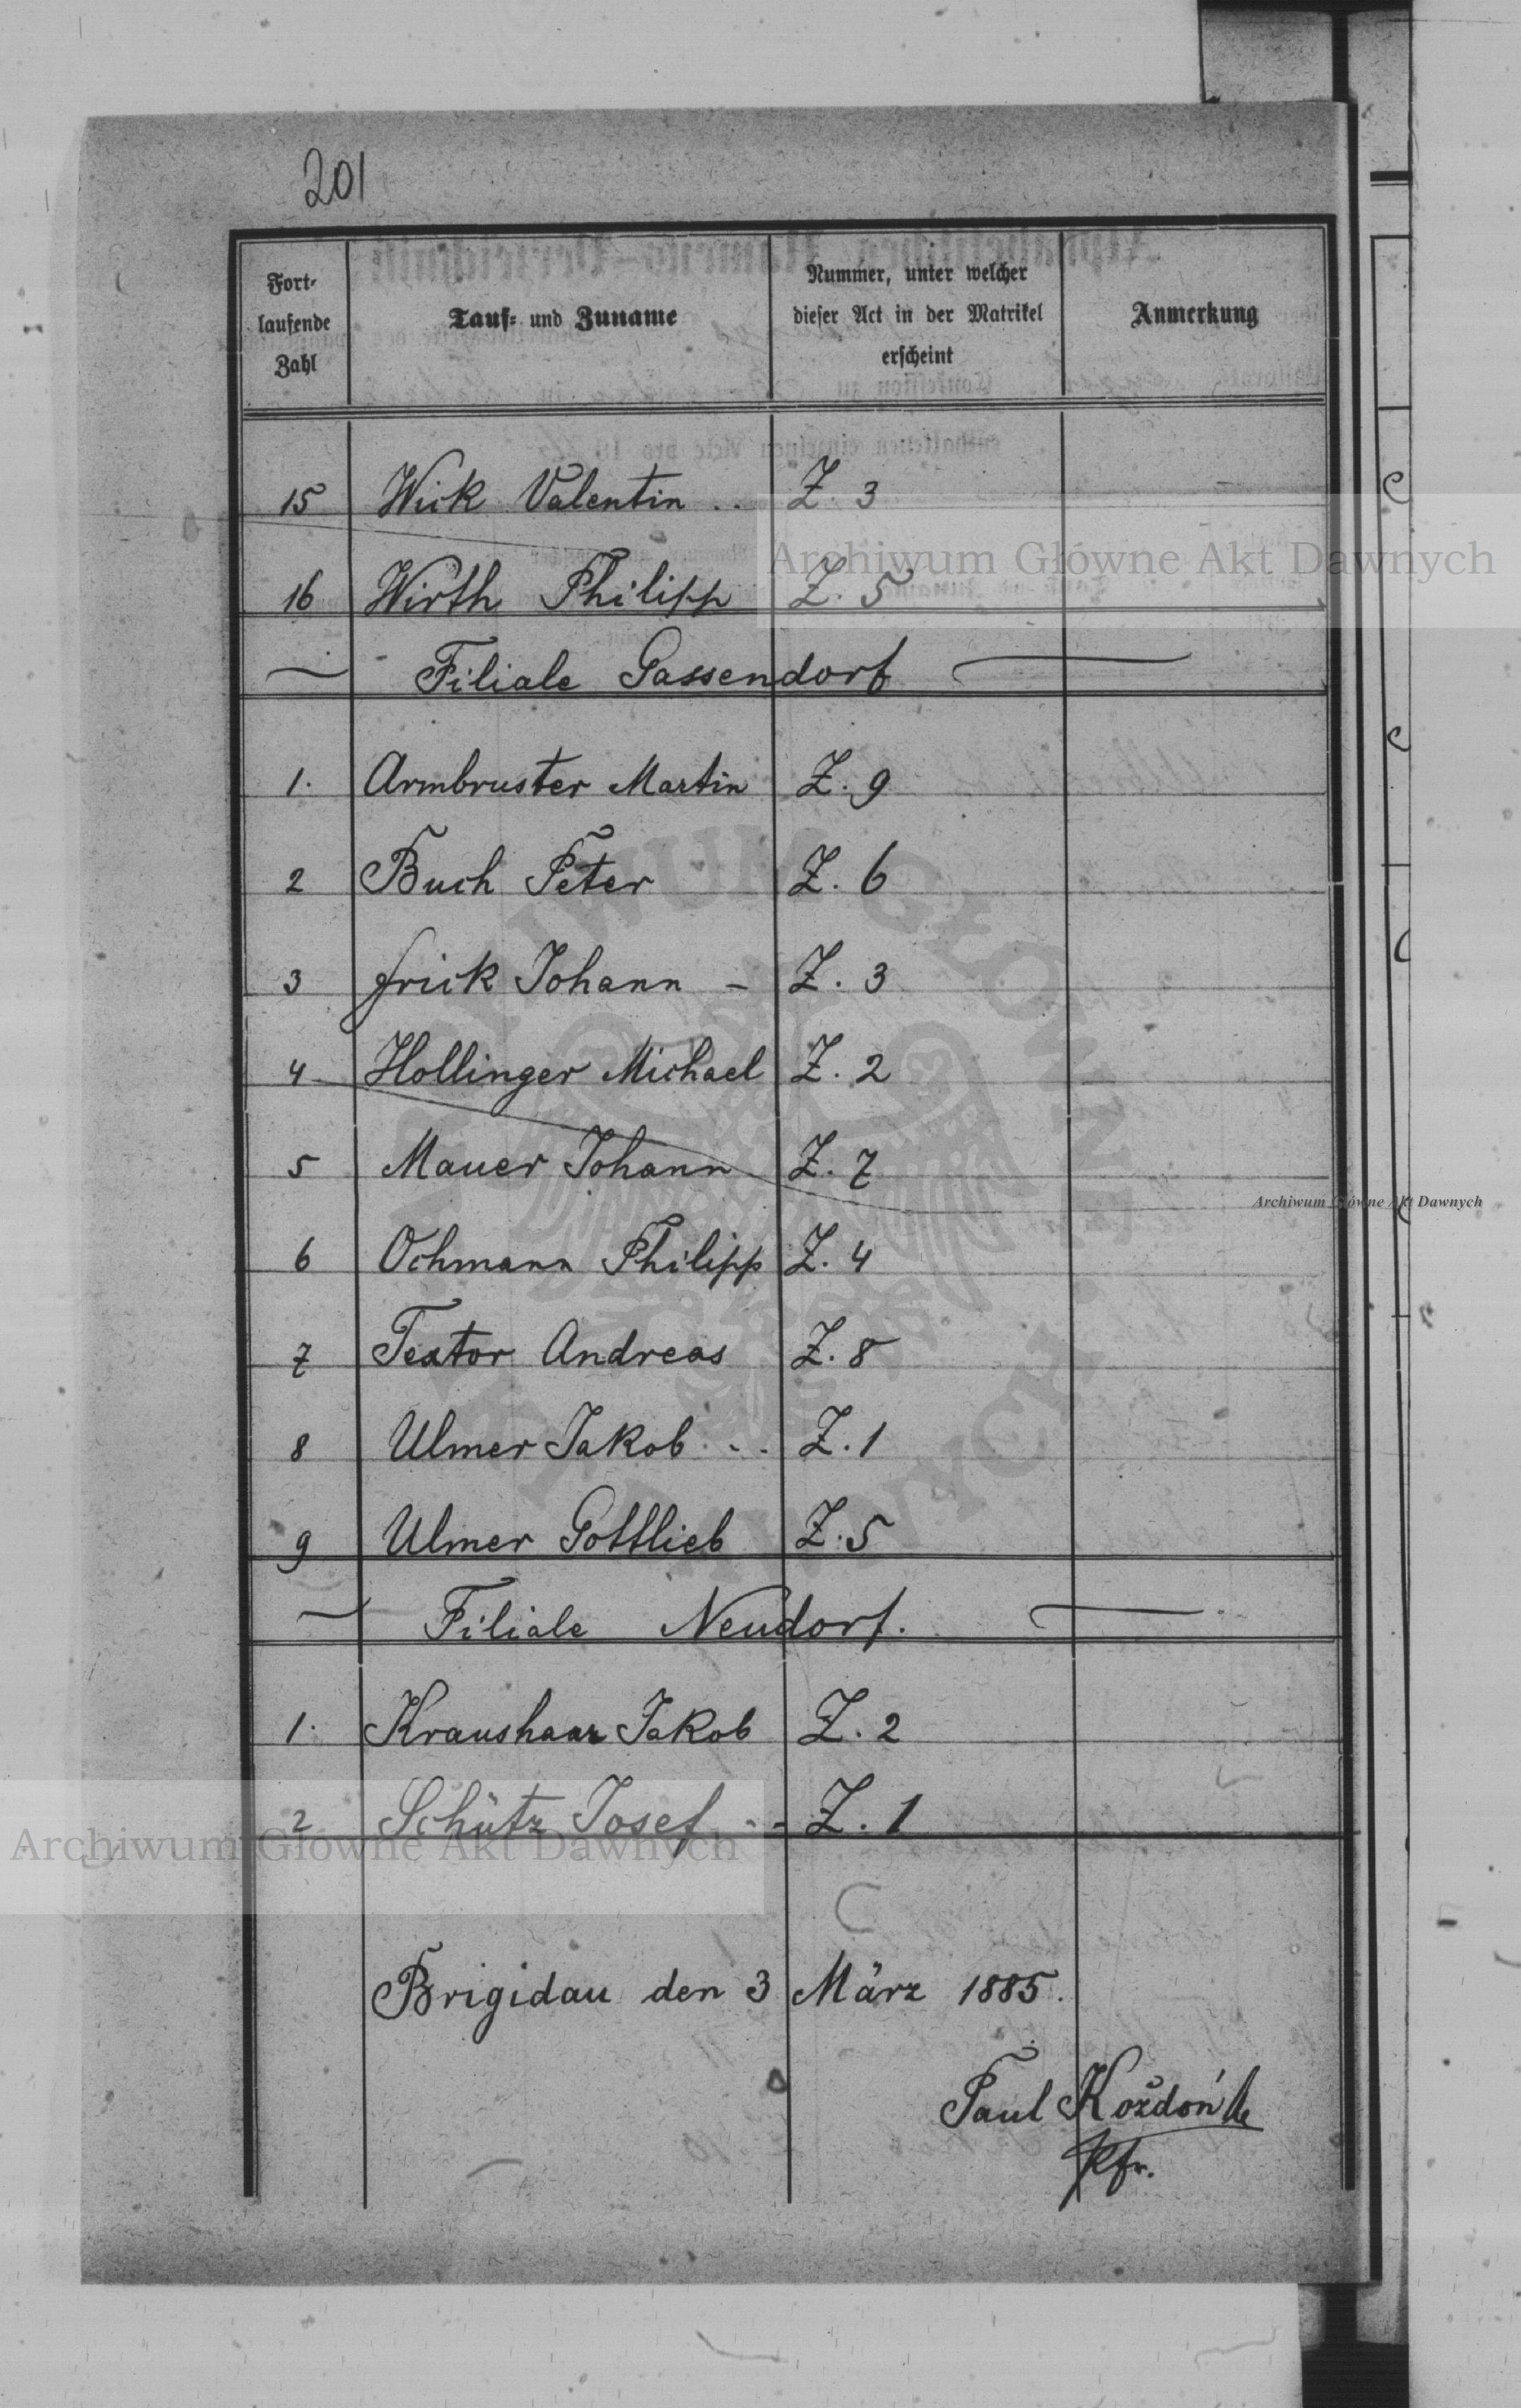 201
Fort-
laufende
Zahl
Tauf- und Zuname
Nummer, unter welcher
dieser Act in der Matrikel
erscheint
Anmerkung
15 Wick Valentin .. Z. 3
Archiwum Główne Akt Dawnych
16 Wirth Philipp Z. 5
Filiale Gassendorf
1. Armbruster Martin Z. 9
2 Buch Peter Z. 6
3 Frick Johann - Z. 3
4 Hollinger Michael Z. 2
5 Mauer Johann Z. 7
Archiwum Główne Akt Dawnych
6 Ochmann Philipp Z. 4
7 Textor Andreas Z. 8
8 Ulmer Jakob .. Z. 1
9 Ulmer Gottlieb Z. 5
Filiale Neudorf.
1. Kraushaar Jakob Z. 2
2 Schütz Josef -- Z. 1
Archiwum Główne Akt Dawnych
Brigidau den 3 März 1885.
Paul Kożdoń
Pfr.